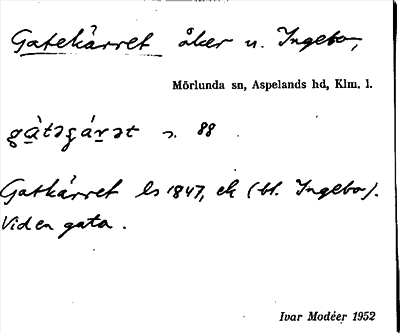 Gatekärret åker u. Ingebo,
Mörlunda sn, Aspelands hd, Klm. l.
s. 88
Gatkärret ls 1847, ek (bl. Ingebo).
Vid en gata.
Ivar Modéer 1952